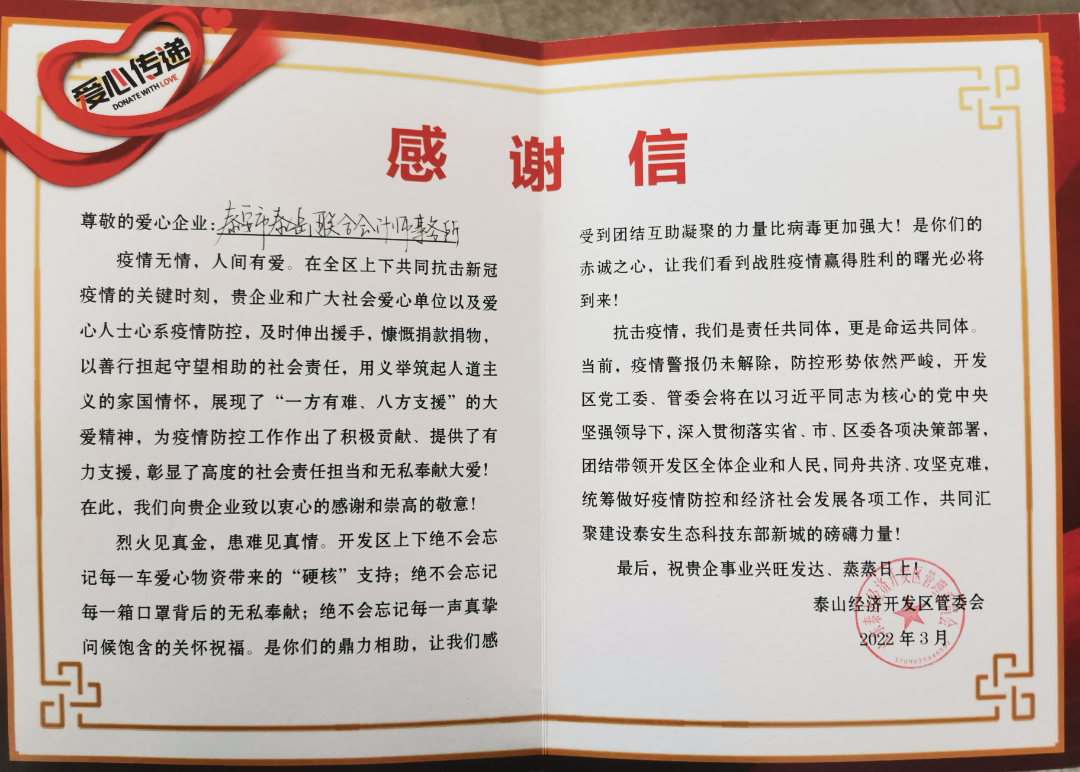 爱心传递
DONATE WITH LOVE
感谢信
尊敬的爱心企业：泰安市泰岳联合会计师事务所
疫情无情，人间有爱。在全区上下共同抗击新冠
疫情的关键时刻，贵企业和广大社会爱心单位以及爱
心人士心系疫情防控，及时伸出援手，慷慨捐款捐物，
以善行担起守望相助的社会责任，用义举筑起人道主
义的家国情怀，展现了“一方有难、八方支援”的大
爱精神，为疫情防控工作作出了积极贡献、提供了有
力支援，彰显了高度的社会责任担当和无私奉献大爱！
在此，我们向贵企业致以衷心的感谢和崇高的敬意！
烈火见真金，患难见真情。开发区上下绝不会忘
记每一车爱心物资带来的“硬核”支持；绝不会忘记
每一箱口罩背后的无私奉献；绝不会忘记每一声真挚
问候饱含的关怀祝福。是你们的鼎力相助，让我们感
受到团结互助凝聚的力量比病毒更加强大！是你们的
赤诚之心，让我们看到战胜疫情赢得胜利的曙光必将
到来！
抗击疫情，我们是责任共同体，更是命运共同体。
当前，疫情警报仍未解除，防控形势依然严峻，开发
区党工委、管委会将在以习近平同志为核心的党中央
坚强领导下，深入贯彻落实省、市、区委各项决策部署，
团结带领开发区全体企业和人民，同舟共济、攻坚克难，
统筹做好疫情防控和经济社会发展各项工作，共同汇
聚建设泰安生态科技东部新城的磅礴力量！
最后，祝贵企事业兴旺发达、蒸蒸日上！
泰山经济开发区管委会
2022年3月